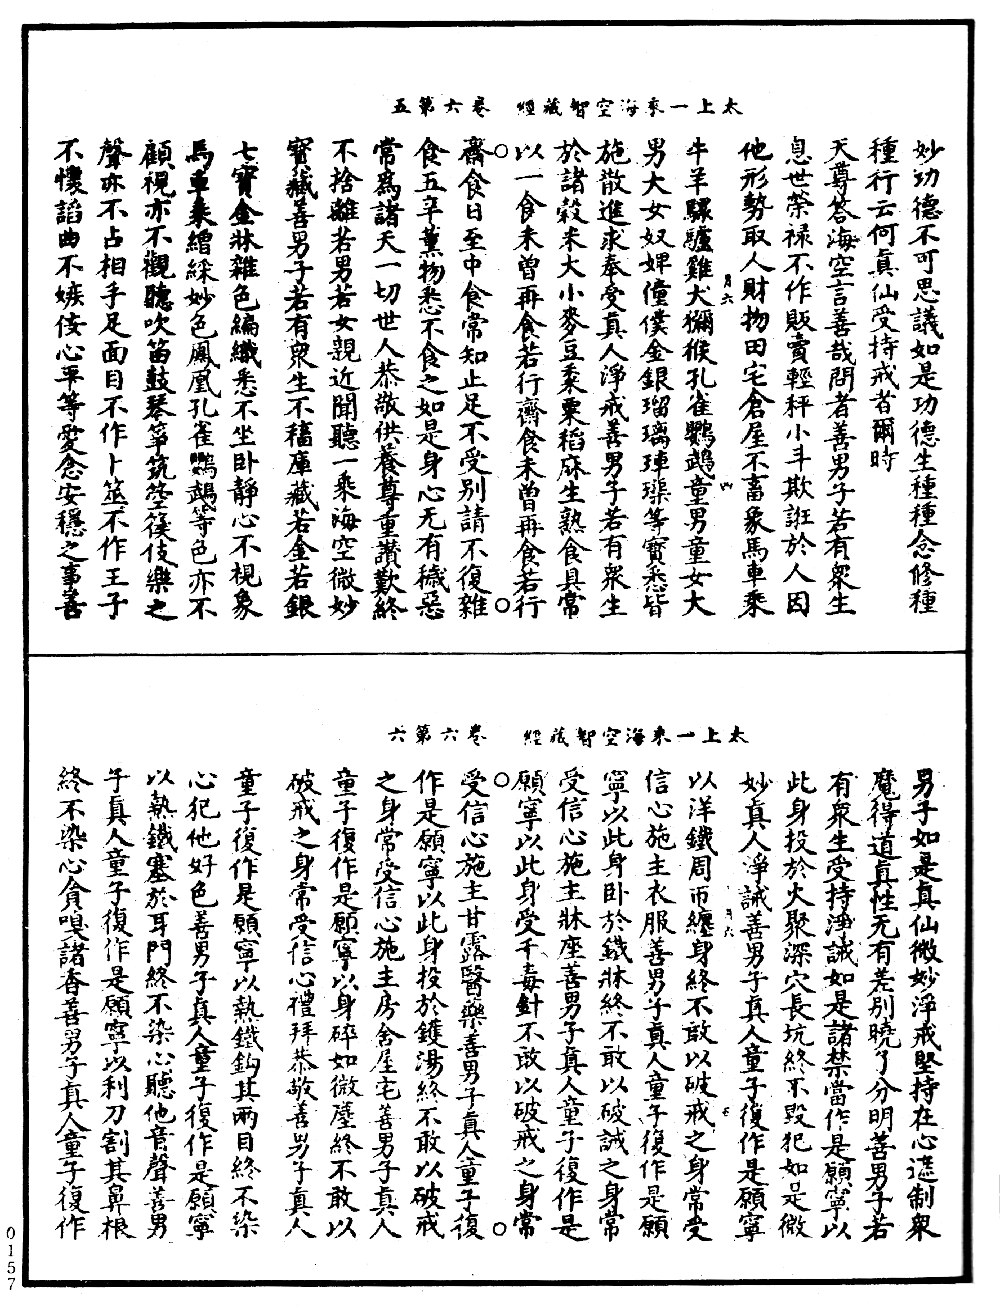 太上一乘海空智藏經　卷六第五
妙功德不可思議如是功德生種種念修種
種行云何真仙受持戒者爾時
天尊答海空言善哉問者善男子若有衆生
息世榮禄不作販賣輕秤小斗欺誑於人因
他形勢取人財物田宅倉屋不畜象馬車乘
牛羊騾驢雞犬獼猴孔雀鸚鵡童男童女大
男大女奴婢僮僕金銀瑠璃硨磲等寶悉皆
施散進求奉受真人淨戒善男子若有衆生
於諸穀米大小麥豆黍粟稻麻生熟食具常
以一食未曾再食若行齋食未曾再食若行
齋食日至中食常知止足不受別請不復雜
食五辛薰物悉不食之如是身心无有穢惡
常爲諸天一切世人恭敬供養尊重讚歎終
不捨離若男若女親近聞聽一乘海空微妙
寶藏善男子若有衆生不穡庫藏若金若銀
七寶金牀雜色編織悉不坐卧靜心不視象
馬車乘繒綵妙色鳳凰孔雀鸚鵡等色亦不
顧視亦不觀聽吹笛鼓琴箏筑箜篌伎樂之
聲亦不占相手足面目不作卜筮不作王子
不懷諂曲不嫉佞心平等愛念安穩之事善
太上一乘海空智藏經　卷六第六
男子如是真仙微妙淨戒堅持在心遮制衆
魔得道真性无有差別曉了分明善男子若
有衆生受持淨誡如是諸禁當作是願寧以
此身投於火聚深穴長坑終不毀犯如是微
妙真人淨誡善男子真人童子復作是願寧
以洋鐵周帀纏身終不敢以破戒之身常受
信心施主衣服善男子真人童子復作是願
寧以此身卧於鐵牀終不敢以破誡之身常
受信心施主牀座善男子真人童子復作是
願寧以此身受千毒針不敢以破戒之身常
受信心施主甘露醫藥善男子真人童子復
作是願寧以此身投於鑊湯終不敢以破戒
之身常受信心施主房舍屋宅善男子真人
童子復作是願寧以身碎如微塵終不敢以
破戒之身常受信心禮拜恭敬善男子真人
童子復作是願寧以熱鐵鈎其兩目終不染
心犯他好色善男子真人童子復作是願寧
以熱鐵塞於耳門終不染心聽他音聲善男
子真人童子復作是願寧以利刀割其鼻根
終不染心貪嗅諸香善男子真人童子復作
0157